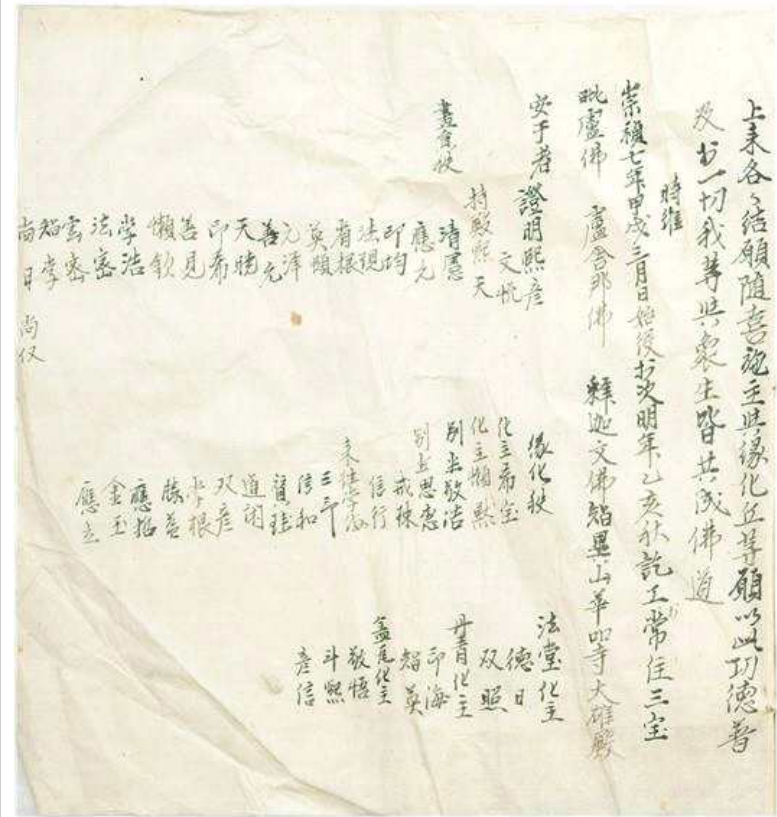 上来各各結願隨喜施主與緣化丘等願以此功德普
及於一切我等與衆生皆共成佛道
時維
崇禎七年甲戌三月日始役於次明年乙亥秋訖工常住三宝
毗盧佛 盧舍那佛 釋迦文佛智異山華嚴寺大雄殿
安于者 證明熙彦
文悅
持殿熙天
畫員秩
清憲
應元
印均
法現
賢根
英頤
元澤
善元
天曉
印希
善見
懶欽
學浩
法密
雲密
智學
尚日
尚仅
緣化秩
化主希宝
化主懶默
別坐敬浩
別坐思惠
戒棟
信行
三印
信和
道閑
双彦
學根
勝益
應招
金玉
應立
法堂化主
德日
双照
丹青化主
印海
智英
盖瓦化主
敬悟
斗熙
彦信